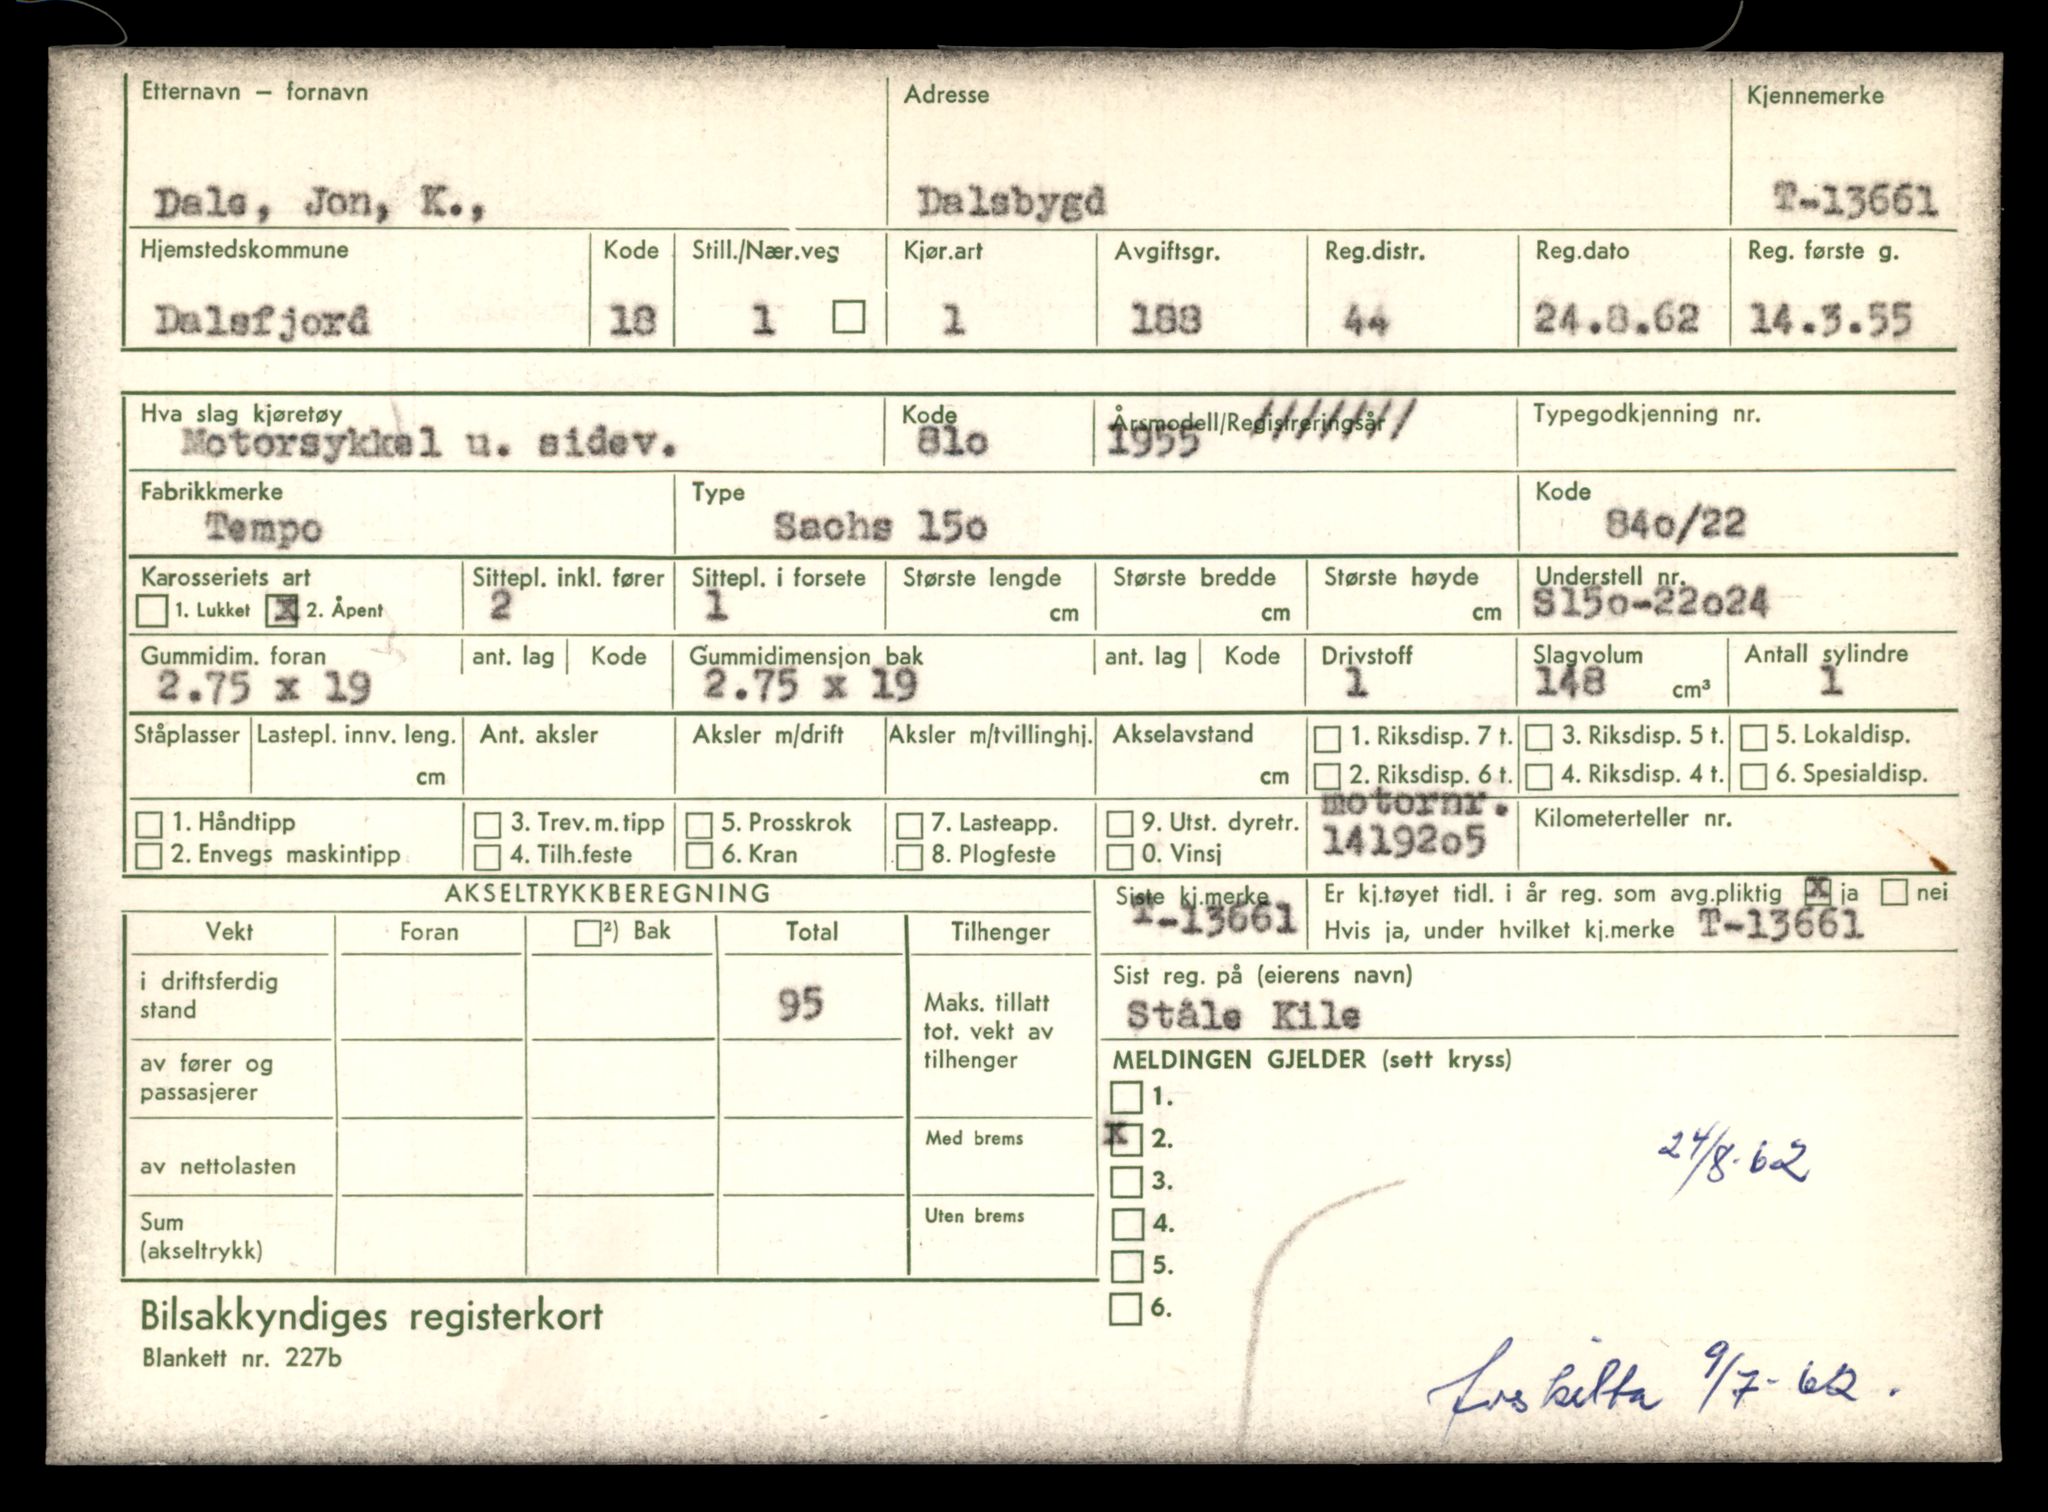 Etternavn – fornavn Adresse Kjennemerke
Dals, Jon, K., Dalsbygd T-13661
Hjemstedskommune Kode Still./Nær.veg Kjør.art Avgiftsgr. Reg.distr. Reg.dato Reg. første g.
Dalsfjord 18 1 1 188 44 24.8.62 14.3.55
Hva slag kjøretøy Kode Årsmodell/Registreringsår Typegodkjenning nr.
Motorsykkel u. sidev. 81o 1955 ///////
Fabrikkmerke Type Kode
Tempo Sachs 15o 84o/22
Karosseriets art Sittepl. inkl. fører Sittepl. i forsete Største lengde Største bredde Største høyde Understell nr.
1. Lukket X 2. Åpent 2 1 cm cm cm S15o-22o24
Gummidim. foran ant. lag Kode Gummidimensjon bak ant. lag Kode Drivstoff Slagvolum Antall sylindre
2.75 x 19 2.75 x 19 1 148 cm³ 1
Ståplasser Lastepl. innv. leng. Ant. aksler Aksler m/drift Aksler m/tvillinghj. Akselavstand 1. Riksdisp. 7 t. 3. Riksdisp. 5 t. 5. Lokaldisp.
cm cm 2. Riksdisp. 6 t. 4. Riksdisp. 4 t. 6. Spesialdisp.
motornr.
1. Håndtipp 3. Trev. m. tipp 5. Prosskrok 7. Lasteapp. 9. Utst. dyretr. 14192o5 Kilometerteller nr.
2. Envegs maskintipp 4. Tilh.feste 6. Kran 8. Plogfeste 0. Vinsj
AKSELTRYKKBEREGNING Siste kj.merke Er kj.tøyet tidl. i år reg. som avg.pliktig X ja nei
T-13661 Hvis ja, under hvilket kj.merke T-13661
Vekt Foran ²) Bak Total Tilhenger
Sist reg. på (eierens navn)
Ståle Kile
i driftsferdig
stand 95
Maks. tillatt
tot. vekt av
tilhenger
av fører og
passasjerer
MELDINGEN GJELDER (sett kryss)
1.
X 2.
3.
4.
5.
6.
av nettolasten Med brems
Sum
(akseltrykk) Uten brems
24/8-62
Bilsakkyndiges registerkort
Blankett nr. 227b
9/7-62.